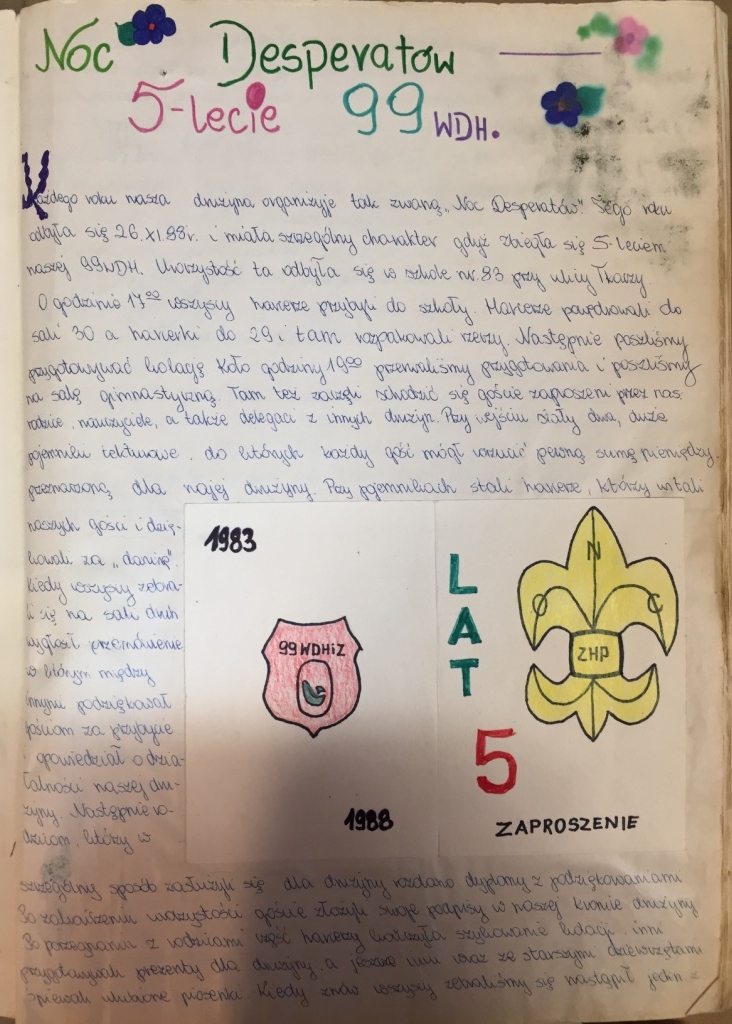 Noc Desperatów
5-lecie 99 WDH.
Każdego roku nasza drużyna organizuje tak zwaną „Noc Desperatów". Tego roku
odbyła się 26.XI.88r. i miała szczególny charakter gdyż zbiegła się 5-leciem
naszej 99WDH. Uroczystość ta odbyła się w szkole nr.83 przy ulicy Tkaczy.
O godzinie 17⁰⁰ wszyscy harcerze przybyli do szkoły. Harcerze powędrowali do
sali 30 a harcerki do 29 i tam rozpakowali rzeczy. Następnie poszliśmy
przygotowywać kolację Koło godziny 19⁰⁰ przerwaliśmy przygotowania i poszliśmy
na salę gimnastyczną. Tam też zaczęli schodzić się goście zaproszeni przez nas:
rodzice, nauczyciele, a także delegaci z innych drużyn. Przy wejściu stały dwa, duże
pojemniki tekturowe, do których każdy gość mógł wrzucać pewną sumę pieniędzy,
przeznaczoną dla naszej drużyny. Przy pojemnikach stali harcerze, którzy witali
naszych gości i dzię-
kowali za „daninę".
Kiedy wszyscy zebra-
li się na sali druh
wygłosił przemówienie
w którym między
innymi podziękował
gościom za przybycie
i opowiedział o dzia-
łalności naszej dru-
żyny. Następnie ro-
dzicom, którzy w
1983
99 WDHiZ
1988
LAT
5
N
O C
ZHP
ZAPROSZENIE
szczególny sposób zasłużyli się dla drużyny rozdano dyplomy z podziękowaniami
Po zakończeniu uroczystości goście złożyli swoje podpisy w naszej kronice drużyny
Po pożegnaniu z rodzicami część harcerzy kończyła szykowanie kolacji, inni
przygotowywali prezenty dla drużyny, a jeszcze inni wraz ze starszymi dziewczętami
śpiewali ulubione piosenki. Kiedy znów wszyscy zebraliśmy się nastąpił jeden z